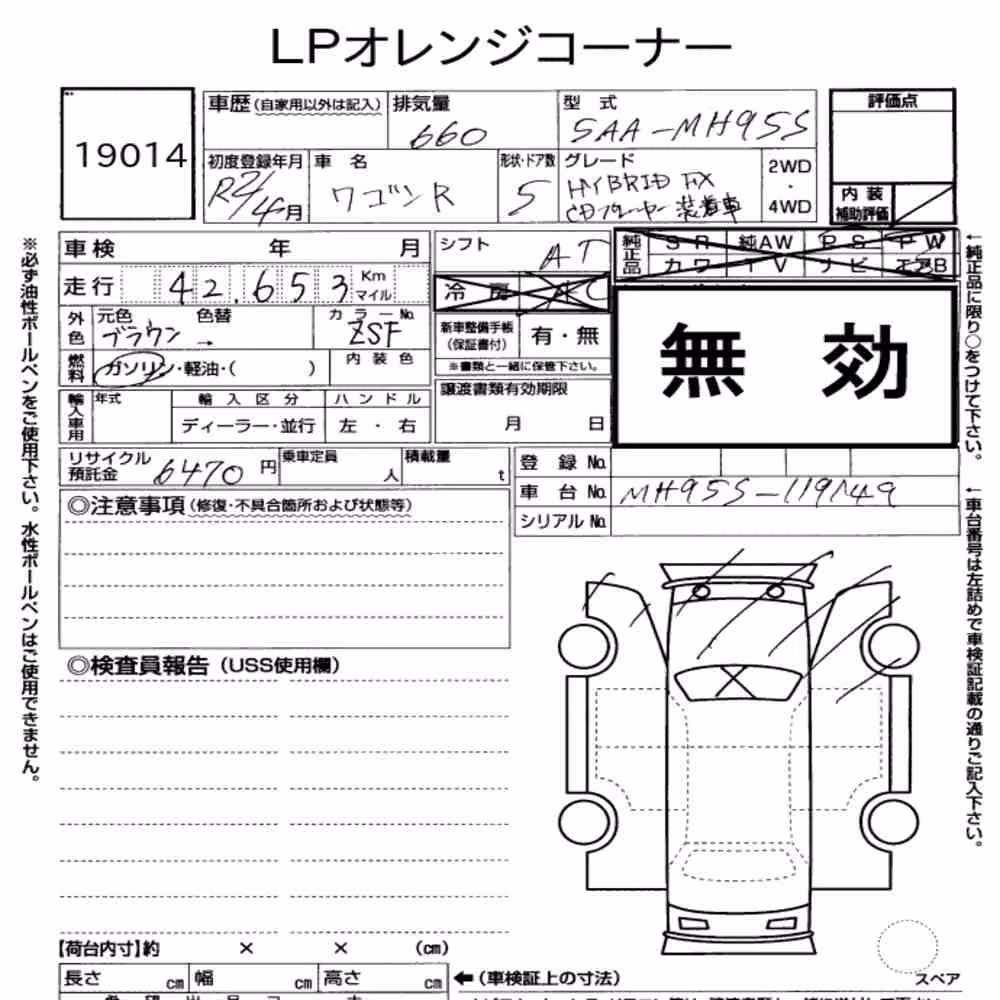 LPオレンジコーナー
19014
車歴(自家用以外は記入)
排気量
660
型式
5AA-MH95S
評価点
初度登録年月
R2/4月
車名
ワゴンR
形状・ドア数
5
グレード
HYBRID FX
CDプレーヤー装着車
2WD
・
4WD
内装
補助評価
車検 年 月
シフト
AT
純正品
SR 純AW PS PW
カワ TV ナビ エアB
走行 42,653 Km
マイル
冷房 AC
外色
元色 色替
ブラウン →
カラーNo.
ZSF
新車整備手帳
(保証書付)
有・無
※書類と一緒に保管下さい。
無効
燃料
ガソリン・軽油・( )
内装色
譲渡書類有効期限
月 日
輸入車用
年式
輸入区分
ディーラー・並行
ハンドル
左・右
リサイクル
預託金
6470円
乗車定員
人
積載量
t
登録No.
車台No. MH95S-119149
シリアルNo.
◎注意事項(修復・不具合箇所および状態等)
◎検査員報告(USS使用欄)
【荷台内寸】約 × × (cm)
長さ cm 幅 cm 高さ cm
←(車検証上の寸法)
スペア
※必ず油性ボールペンをご使用下さい。水性ボールペンはご使用できません。
←純正品に限り○をつけて下さい。
←車台番号は左詰めで車検証記載の通りご記入下さい。